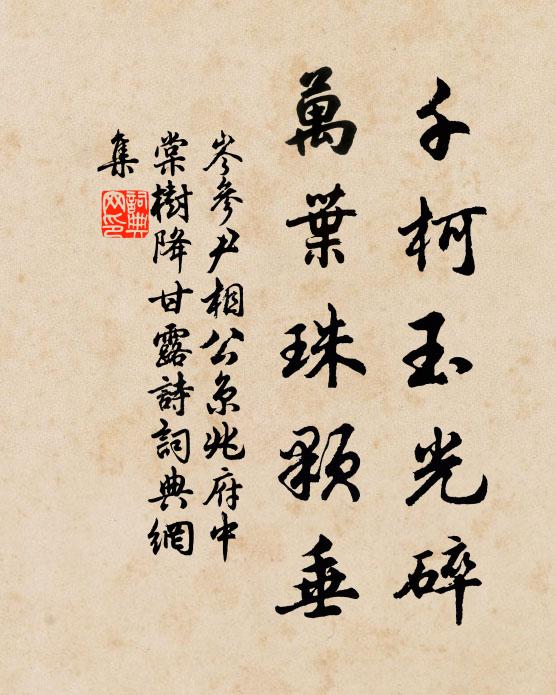 千柯玉光碎
萬葉珠顆垂
岑參尹相公京兆府中
棠樹降甘露詩詞典網
集
詞典
网印